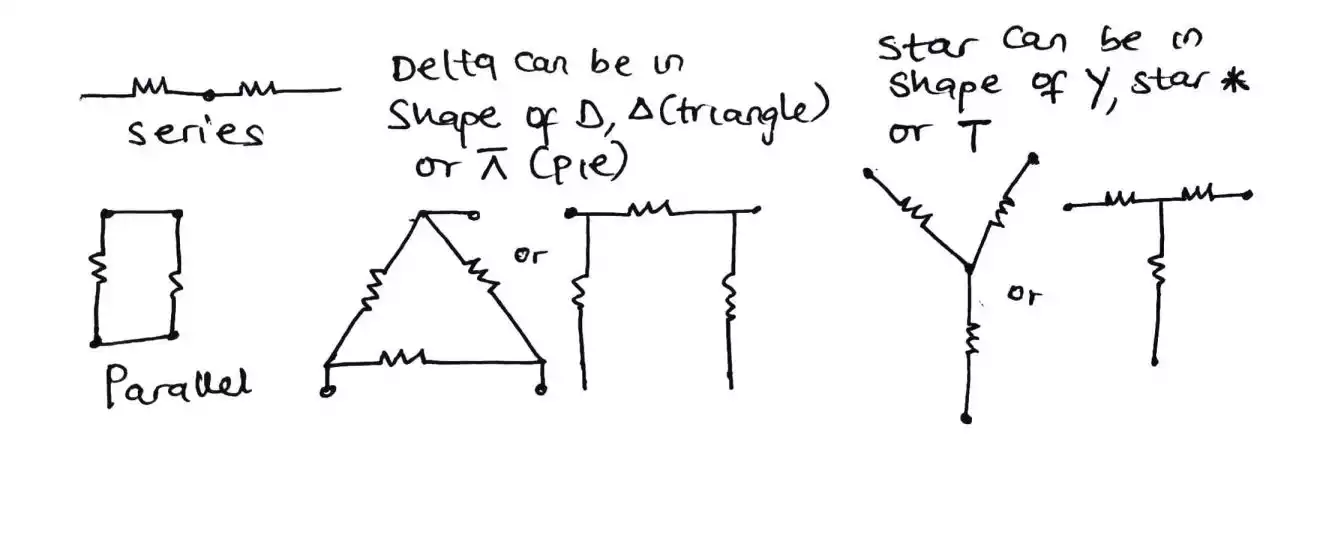 series
Delta can be in
shape of D, Δ(triangle)
or π (pie)
Star can be in
shape of Y, star *
or T
or
or
Parallel